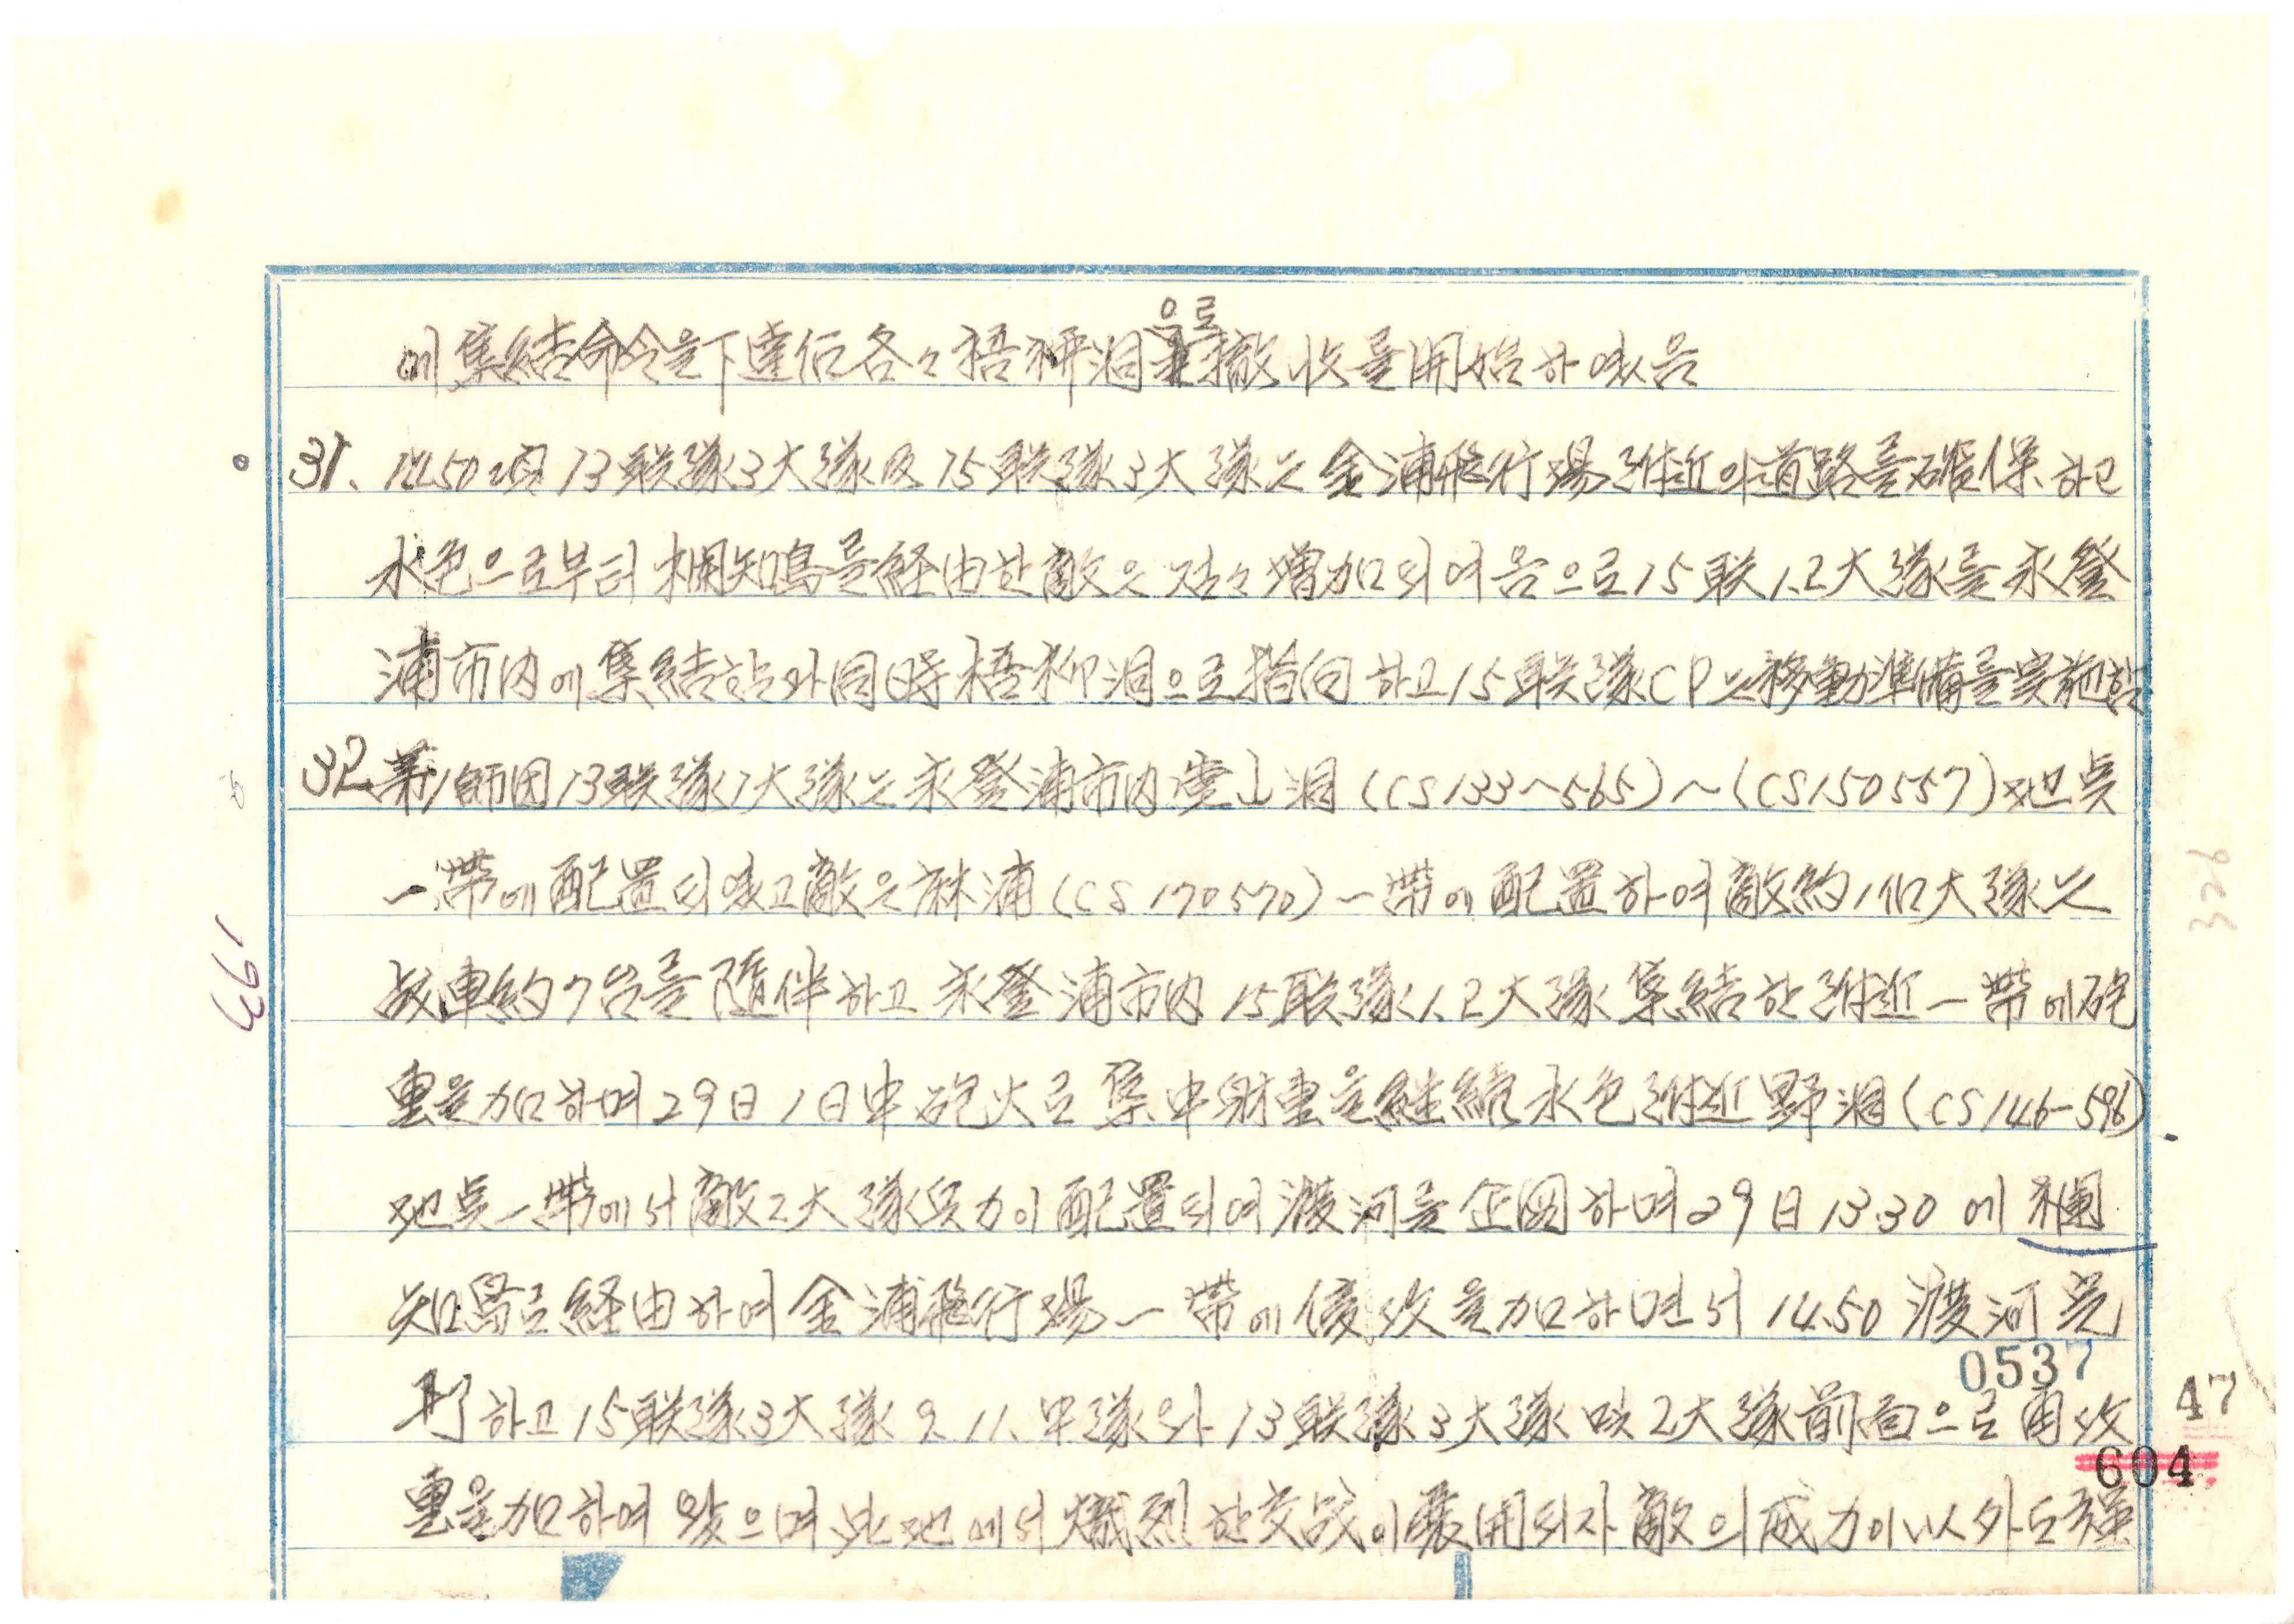 으로
에 集結命令을 下達任 各々 梧柳洞 撤收를 開始하였음
31. 14.50頃 13联隊 3大隊 及 15联隊 3大隊는 金浦飛行場 附近의 道路를 確保하고
水色으로부터 栏知島를 経由한 敵은 점々 增加되여 옴으로 15联 1.2大隊를 永登
浦市内에 集結함과 同時 梧柳洞으로 指向하고 15联隊CP는 移動準備를 実施함
32. 苐1師団 13联隊 1大隊는 永登浦市内 堂山洞 (CS133~565)~(CS150557) 地点
一帶에 配置되였고 敵은 麻浦 (CS 170570) 一帶에 配置하여 敵 約 1個大隊는
战車 約 7台를 隨伴하고 永登浦市内 15联隊 1.2大隊 集結한 附近 一帶에 砲
重을 加하며 29日 1日中 砲火로 集中射重을 継続 水色附近 野洞 (CS146-596)
地点 一帶에서 敵 2大隊 兵力이 配置되여 渡河를 企図하며 29日 13.30에 栏
知島로 経由하여 金浦飛行場 一帶에 侵攻을 加하면서 14.50 渡河 完
了하고 15联隊 3大隊 9. 11. 中隊와 13联隊 3大隊 및 2大隊 前面으로 再攻
重을 加하여 왔으며 此地에서 熾烈한 交战이 展開되자 敵의 威力이 以外로 强
193
326
0537
47
604